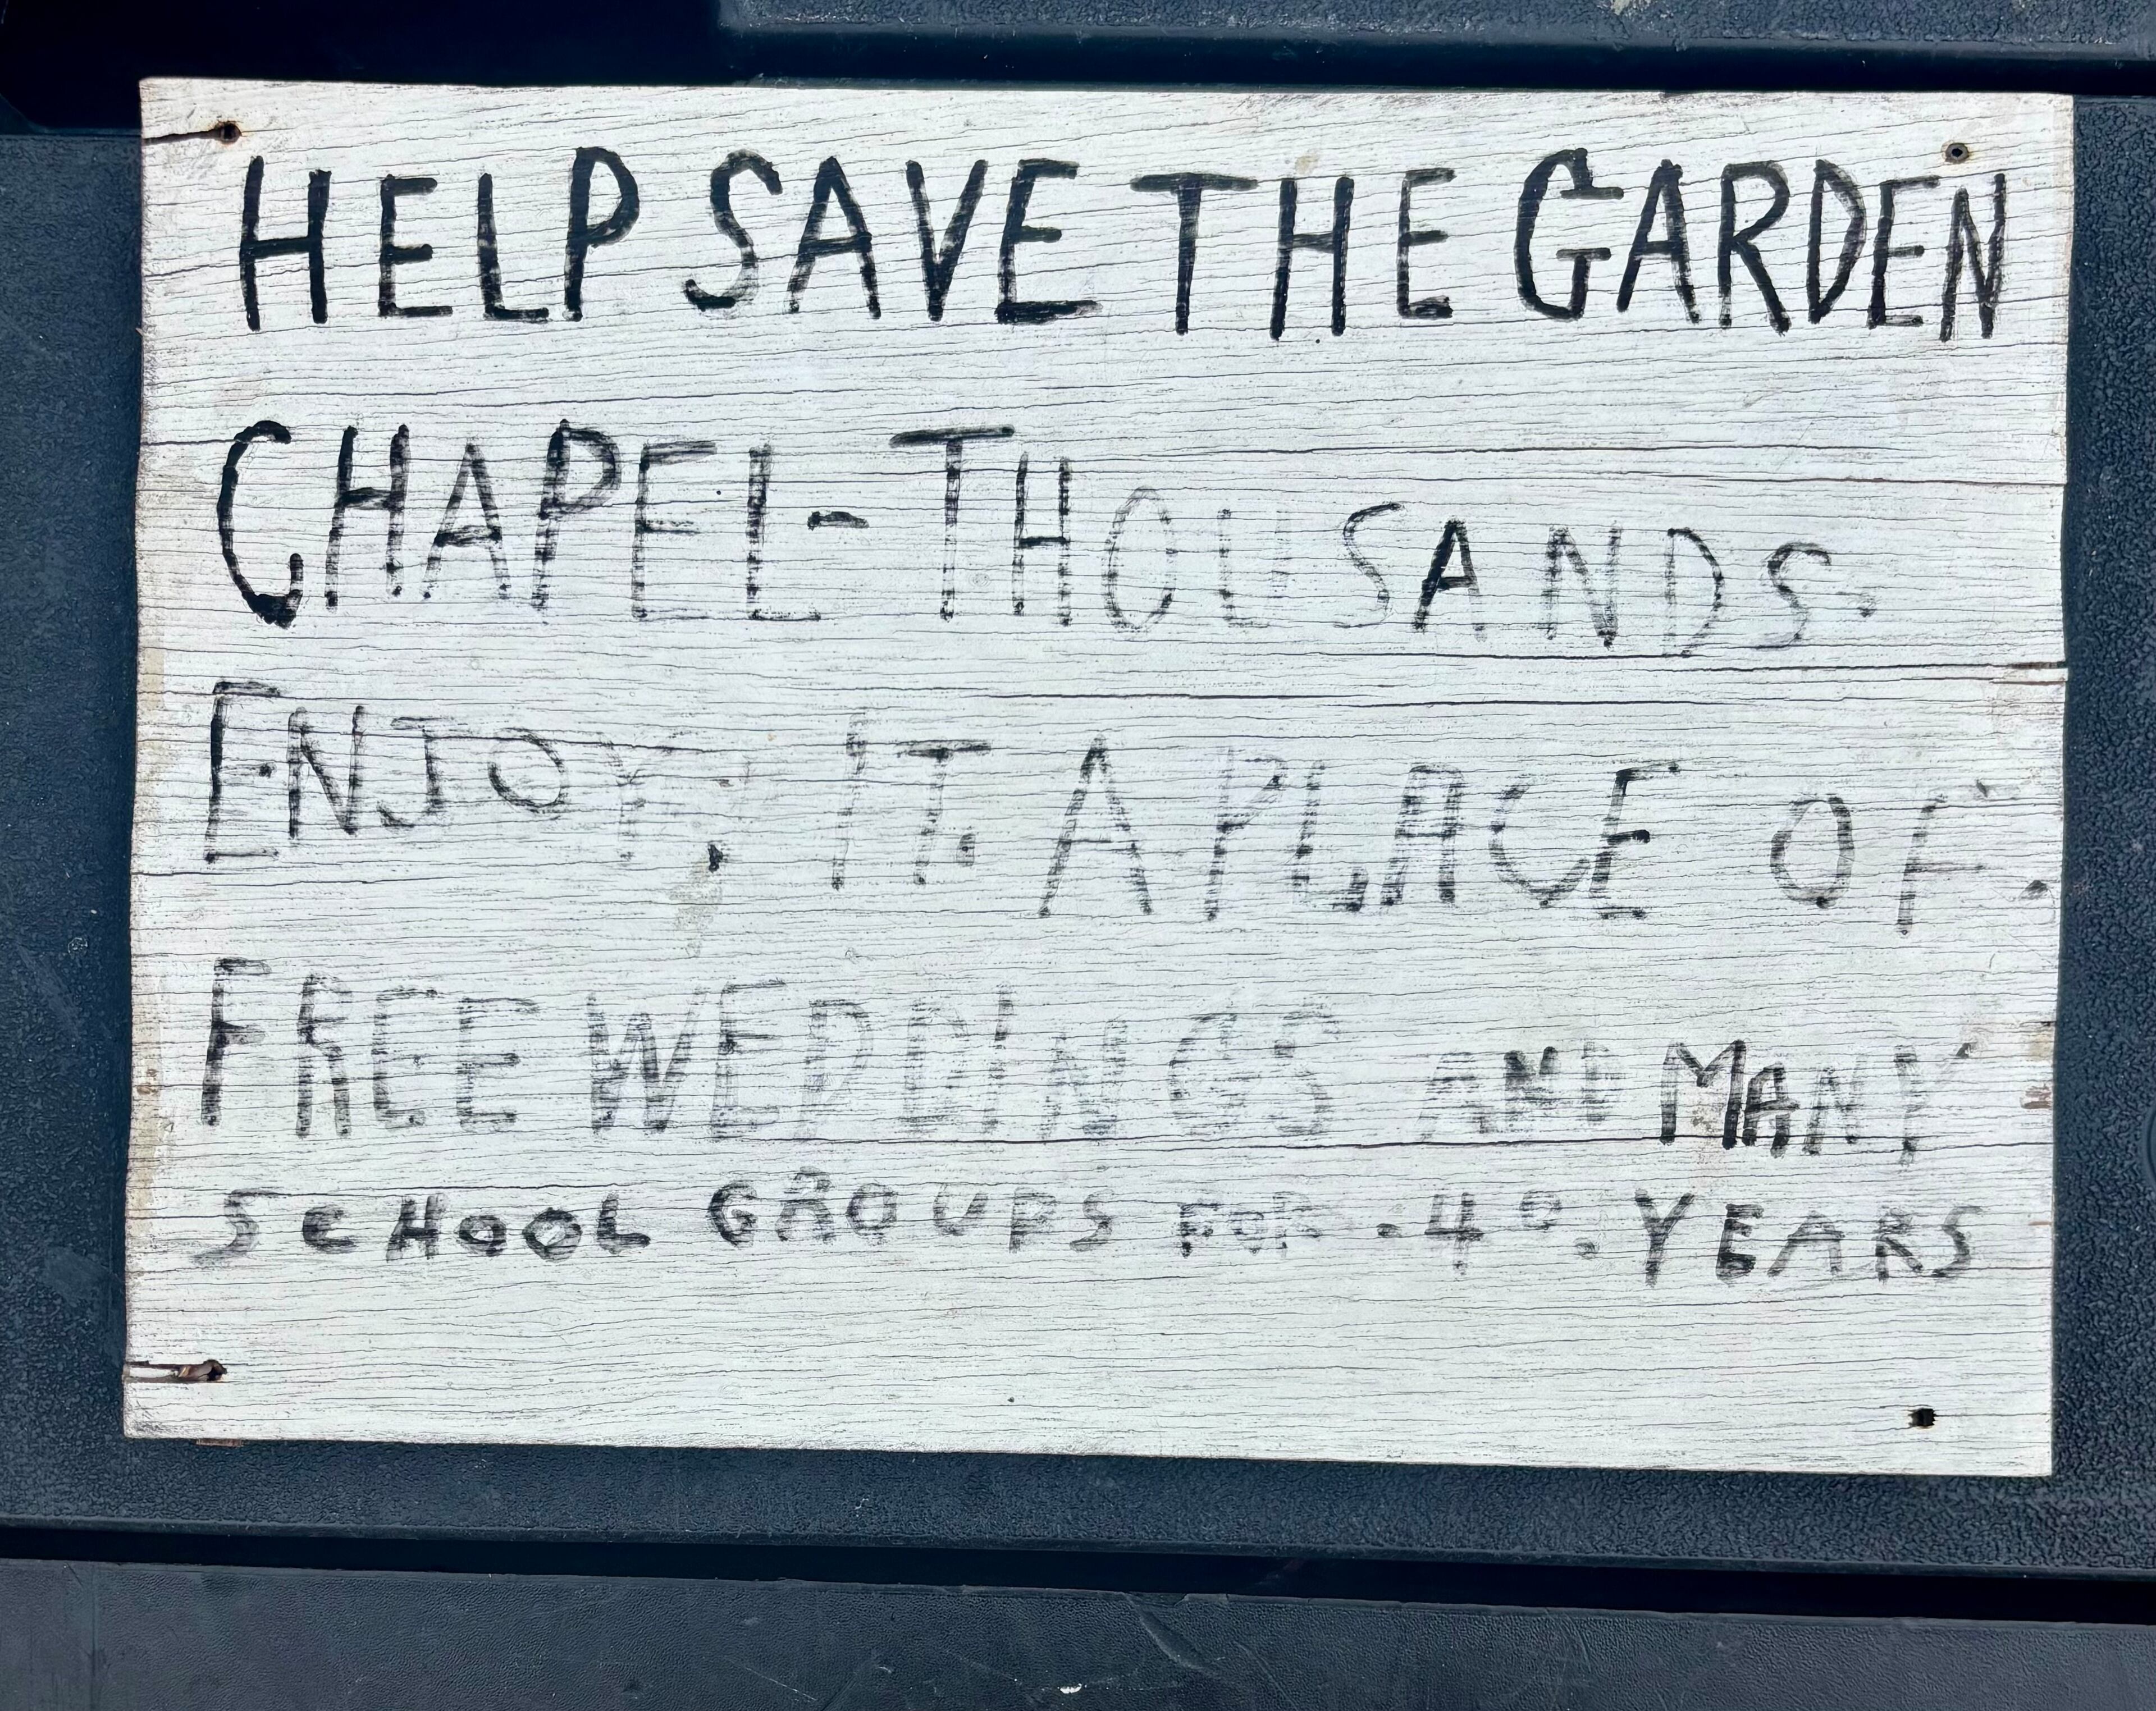 HELP SAVE THE GARDEN
CHAPEL - THOUSANDS
ENJOY IT. A PLACE OF
FREE WEDDINGS AND MANY
SCHOOL GROUPS FOR 40 YEARS